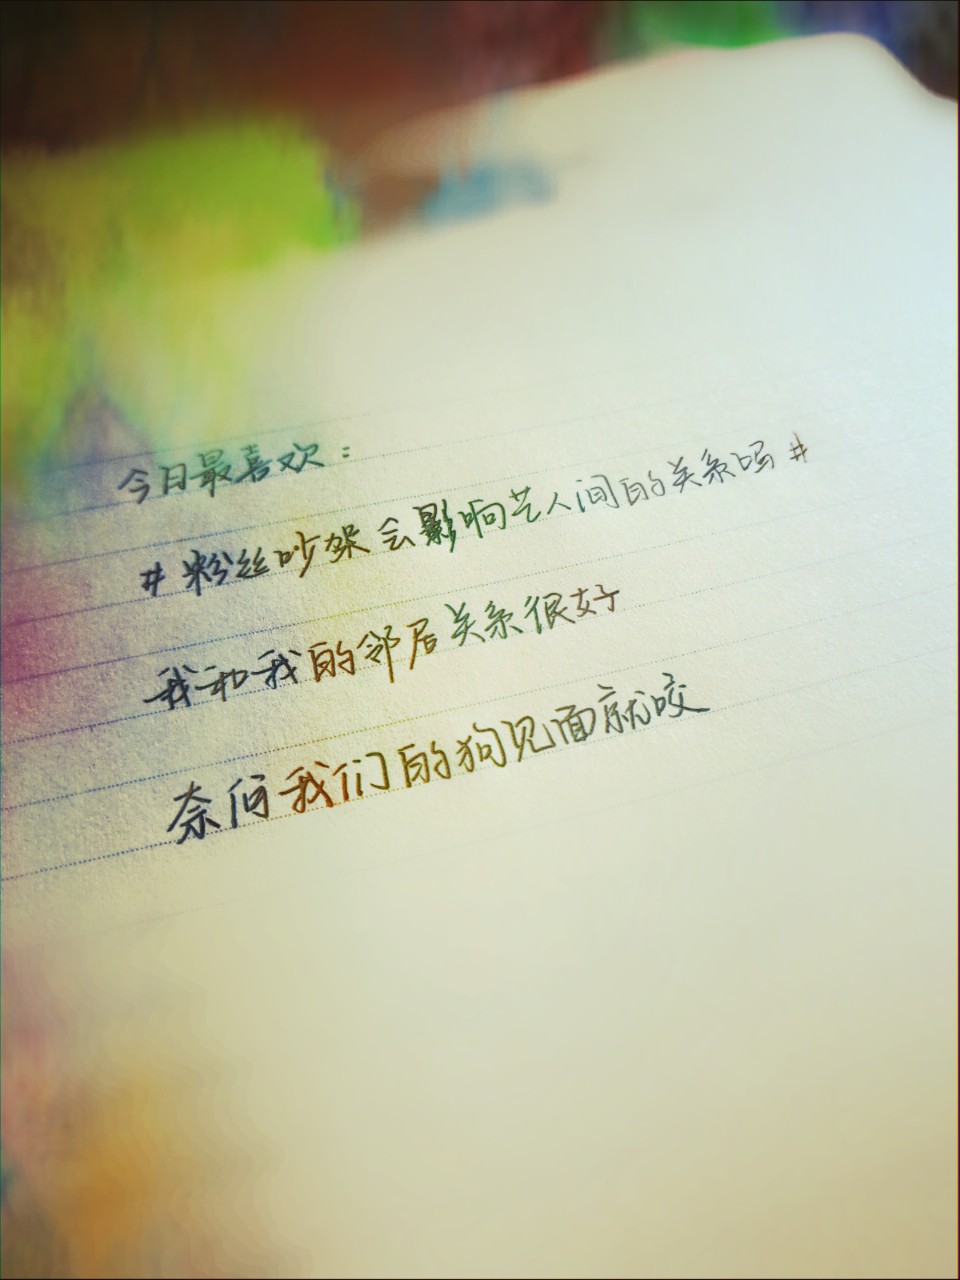 今日最喜欢：
#粉丝吵架会影响艺人间的关系吗#
我和我的邻居关系很好
奈何我们的狗见面就咬